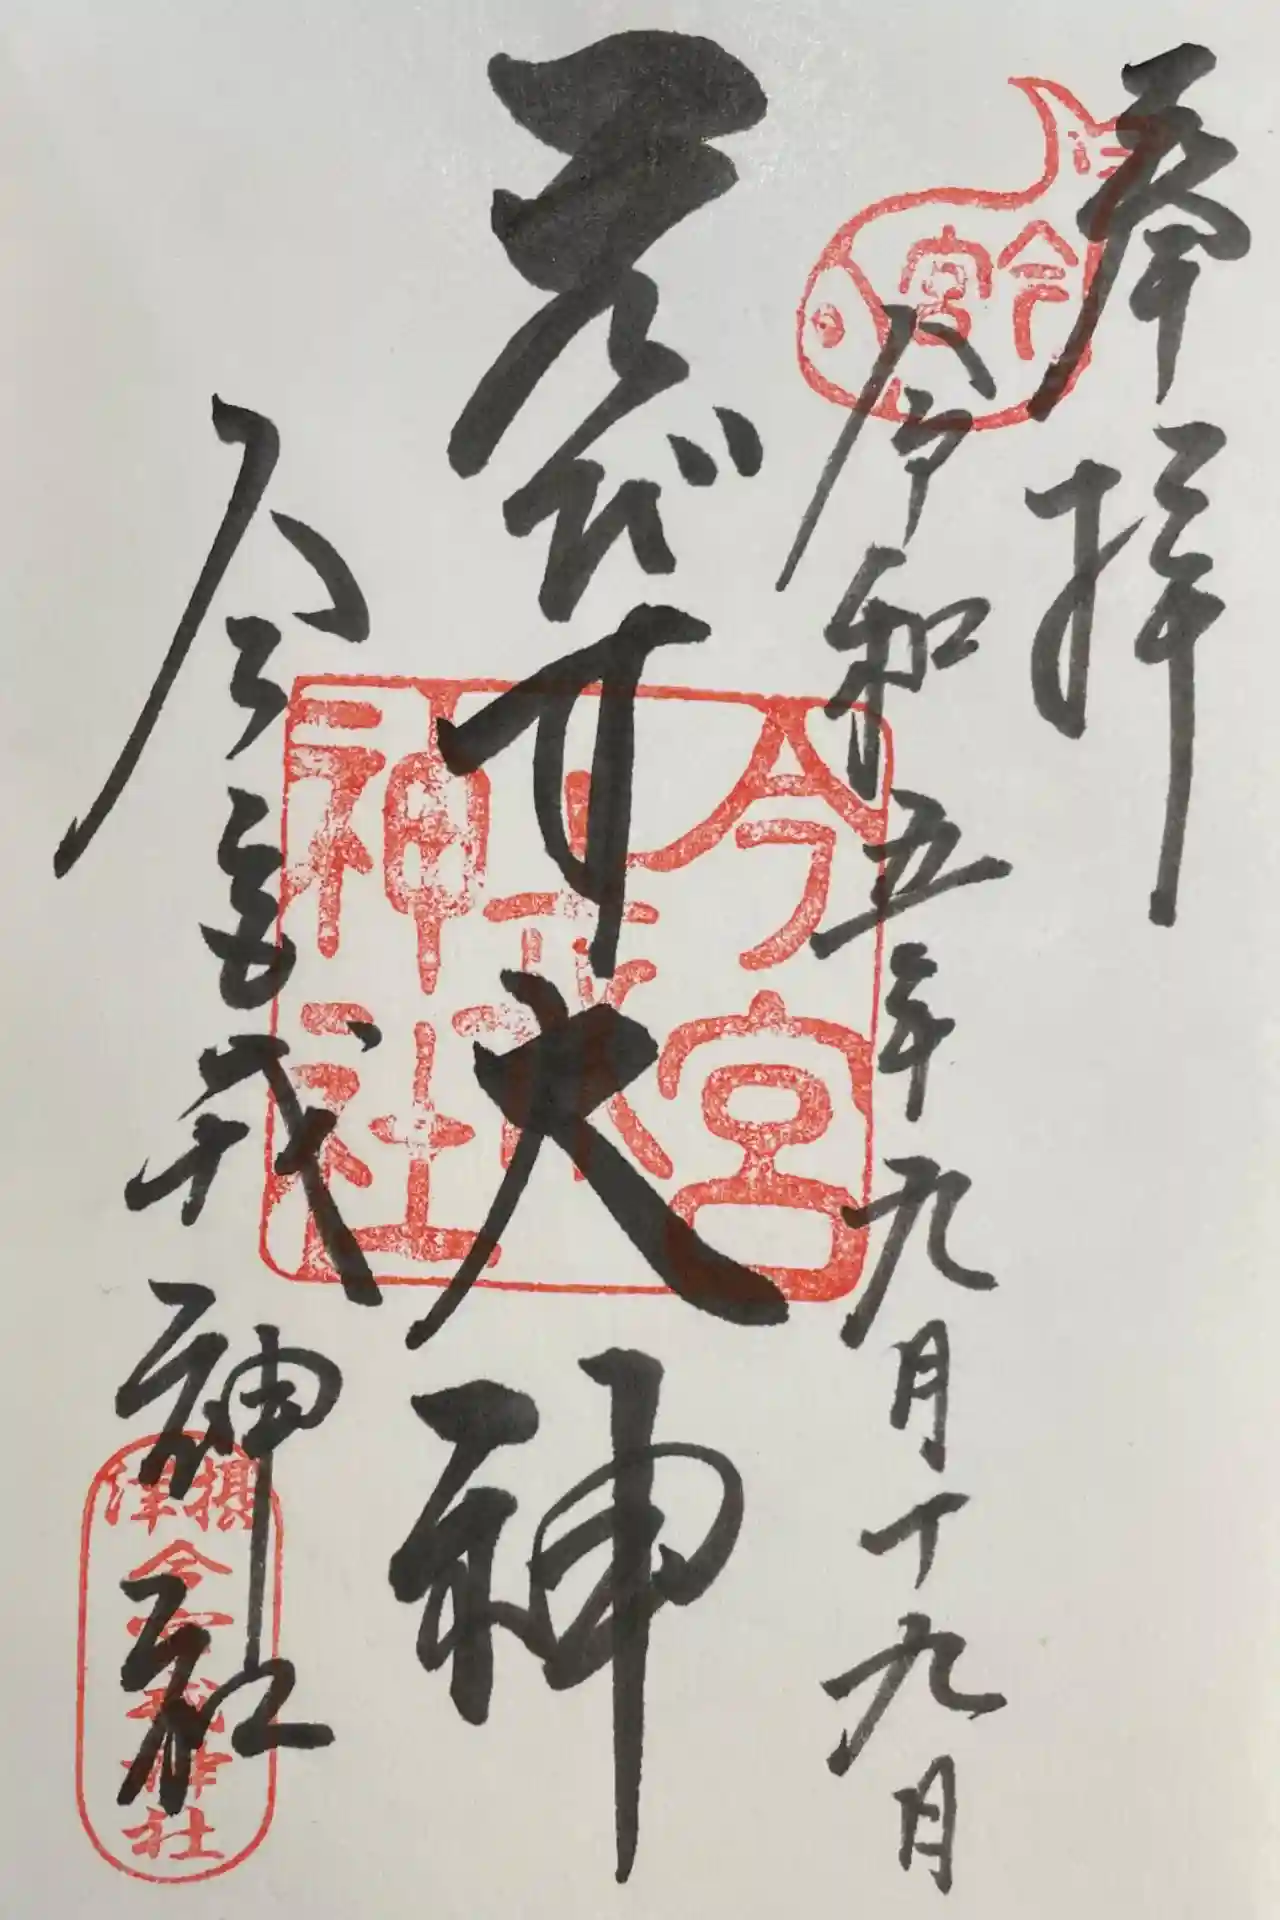 奉拝
今宮
令和五年九月十九日
ゑびす大神
今宮戎神社
今宮戎神社
摂津
今宮戎神社